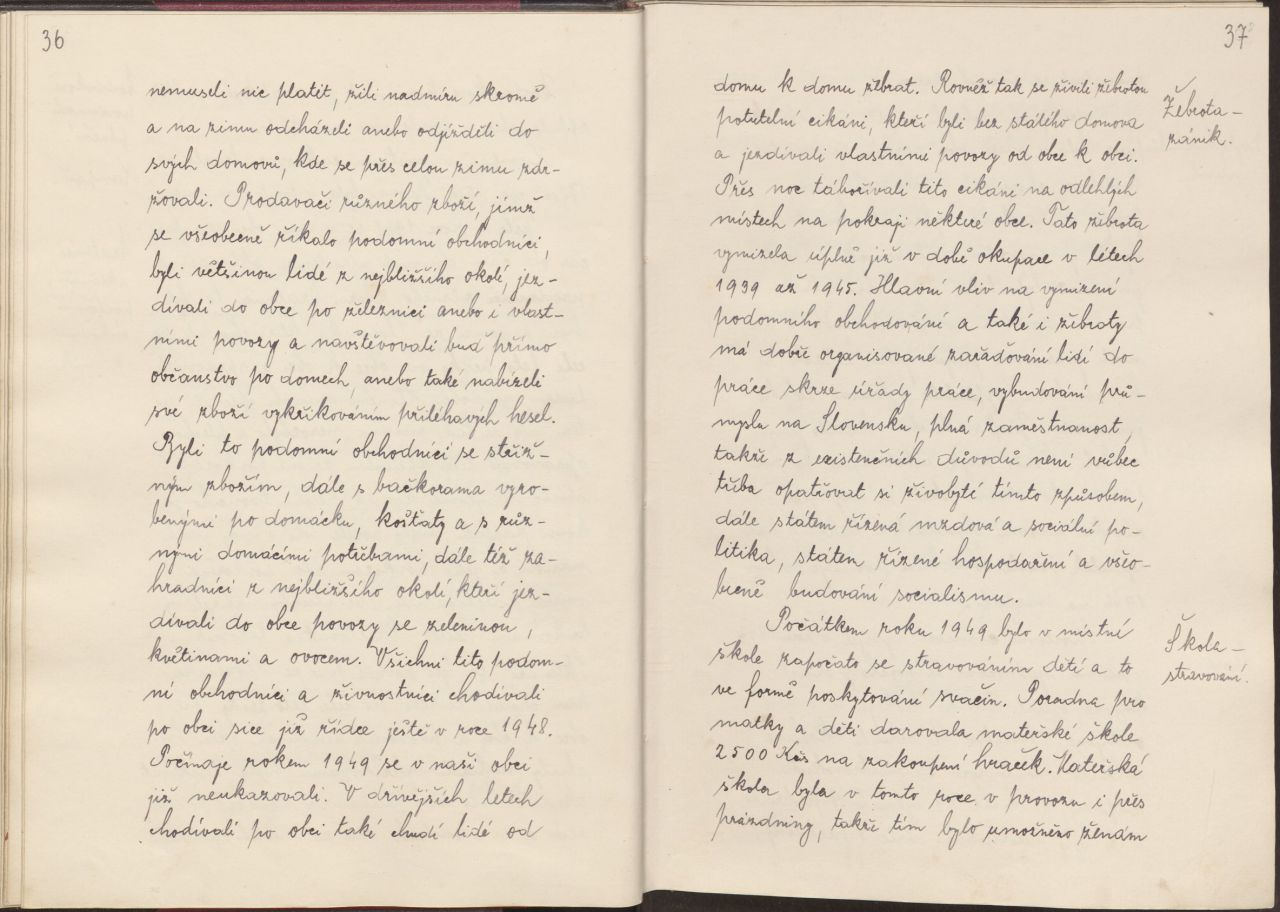 36
nemuseli nic platit, žili nadmíru skromě
a na zimu odcházeli anebo odjížděli do
svých domovů, kde se přes celou zimu zdr-
žovali. Prodavači různého zboží, jimž
se všeobecně říkalo podomní obchodníci,
byli většinou lidé z nejbližšího okolí, jez-
dívali do obce po železnici anebo i vlast-
ními povozy a navštěvovali buď přímo
občanstvo po domech, anebo také nabízeli
své zboží vykřikováním přiléhavých hesel.
Byli to podomní obchodníci se střiž-
ným zbožím, dále s bačkorama vyro-
benými po domácku, košťaty a s růz-
nými domácími potřebami, dále též za-
hradníci z nejbližšího okolí, kteří jez-
dívali do obce povozy se zeleninou,
květinami a ovocem. Všichni tito podom-
ní obchodníci a živnostníci chodívali
po obci sice již řídce ještě v roce 1948.
Počínaje rokem 1949 se v naší obci
již neukazovali. V dřívějších letech
chodívali po obci také chudí lidé od
37
domu k domu žebrat. Rovněž tak se živili žebrotou
potulní cikáni, kteří byli bez stálého domova
a jezdívali vlastními povozy od obce k obci.
Přes noc tábořívali tito cikáni na odlehlých
místech na pokraji některé obce. Tato žebrota
vymizela úplně již v době okupace v létech
1939 až 1945. Hlavní vliv na vymizení
podomního obchodování a také i žebroty
má dobře organisované zařáďování lidí do
práce skrze úřády práce, vybudování prů-
myslu na Slovensku, plná zaměstnanost,
takže z existenčních důvodů není vůbec
třeba opatřovat si živobytí tímto způsobem,
dále státem řízená mzdová a sociální po-
litika, státem řízené hospodaření a všeo-
becně budování socialismu.
Počátkem roku 1949 bylo v místní
škole započato se stravováním dětí a to
ve formě poskytování svačin. Poradna pro
matky a děti darovala mateřské škole
2500 Kčs na zakoupení hraček. Mateřská
škola byla v tomto roce v provozu i přes
prázdniny, takže tím bylo umožněno ženám
Žebrota-
zánik.
Škola-
stravování.